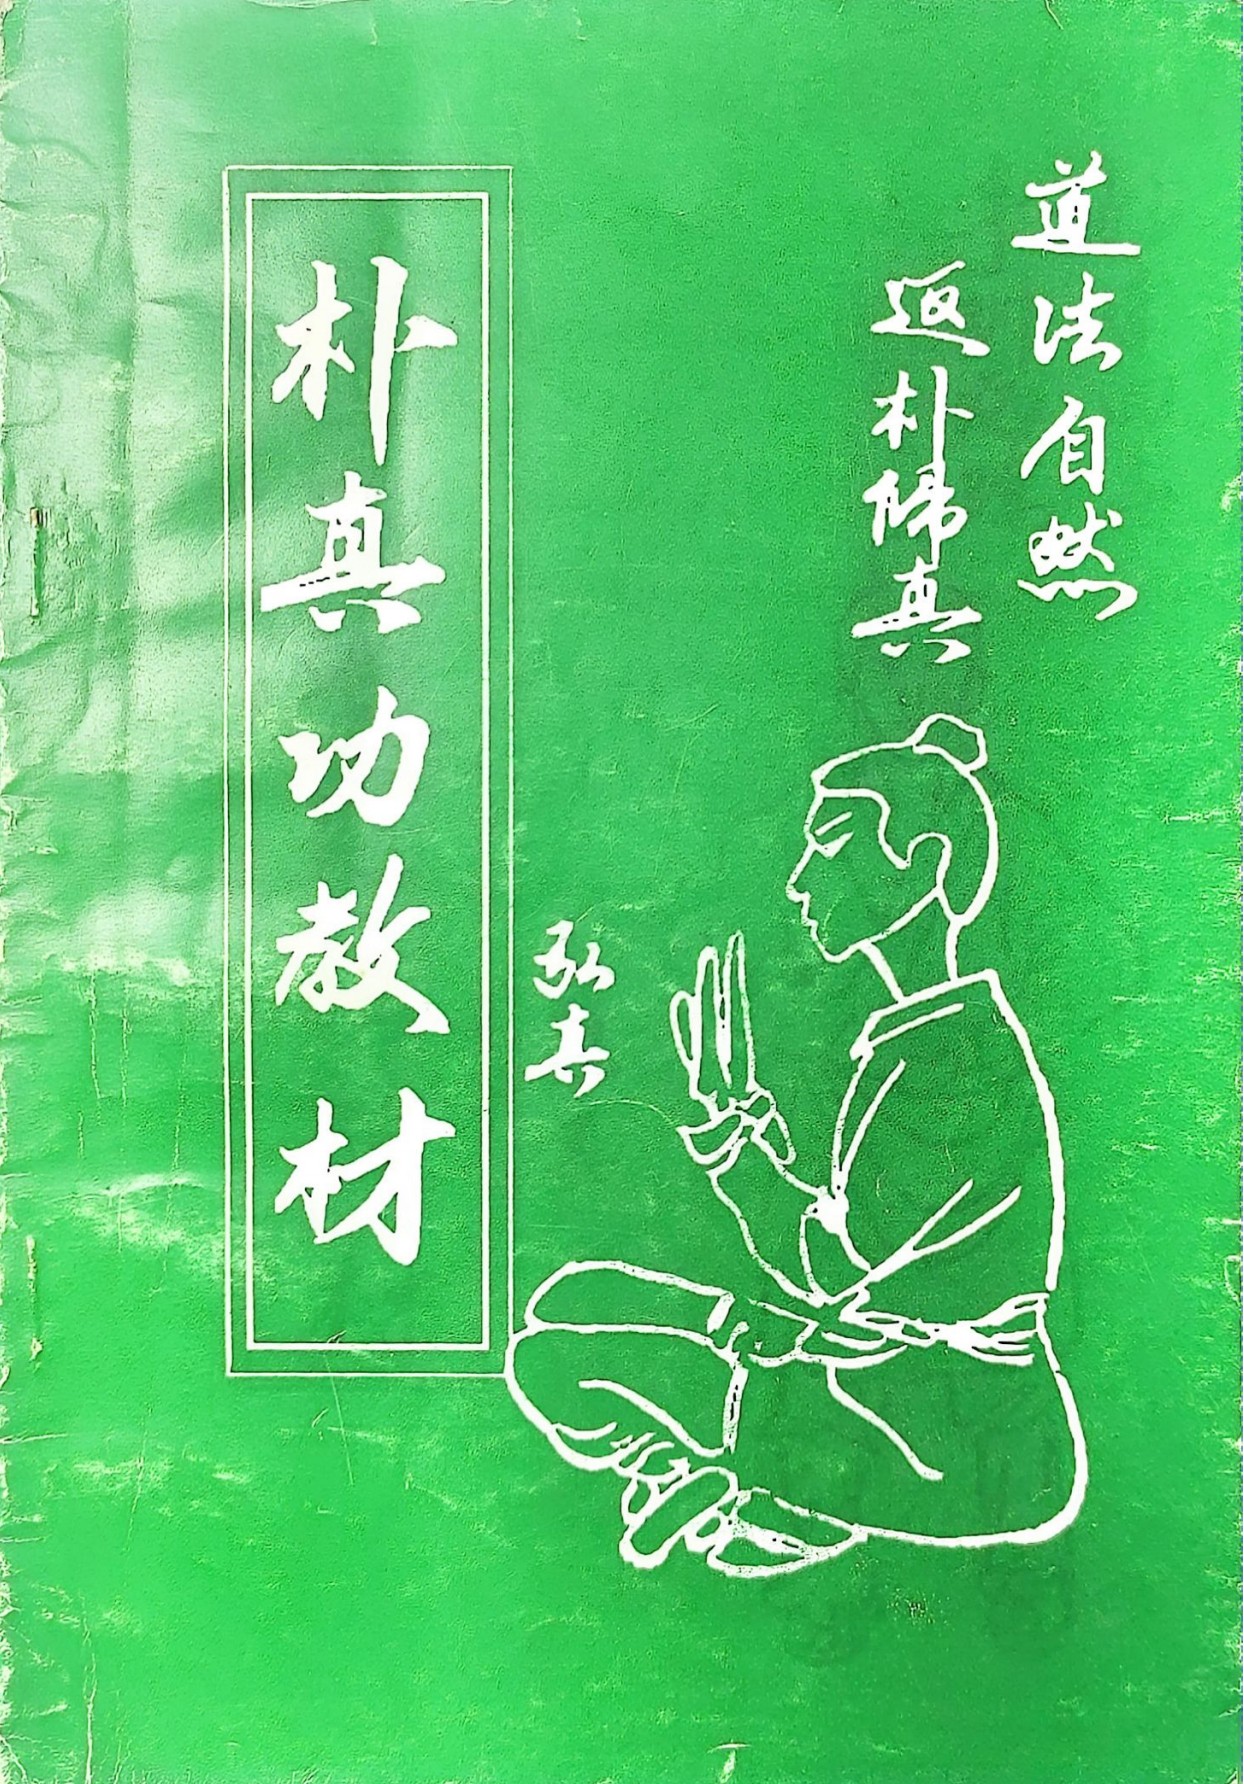 道法自然
返朴归真
弘真
朴真功教材